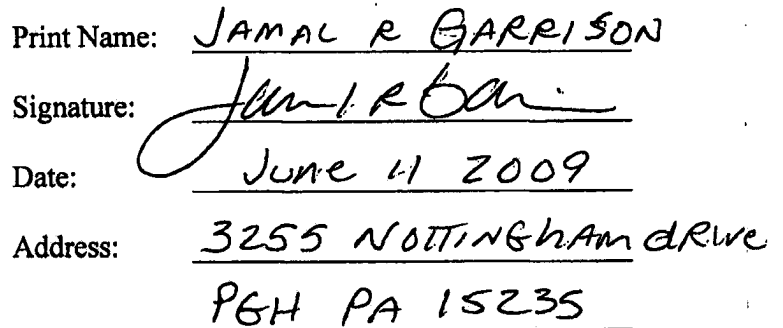 Print Name: JAMAL R GARRISON
Signature: Jamal R Garri
Date: June 11 2009
Address: 3255 NOTTINGhAm dRive
PGH PA 15235